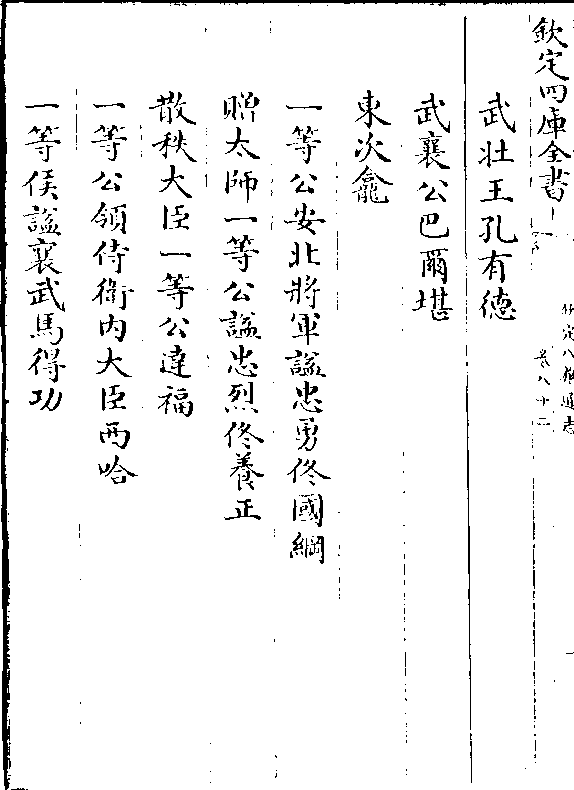 欽定四庫全書
欽定八旗通志
卷八十二
武壯王孔有德
武襄公巴爾堪
東次龕
一等公安北將軍諡忠勇佟國綱
贈太師一等公諡忠烈佟養正
散秩大臣一等公達福
一等公領侍衛內大臣西哈
一等侯諡襄武馬得功